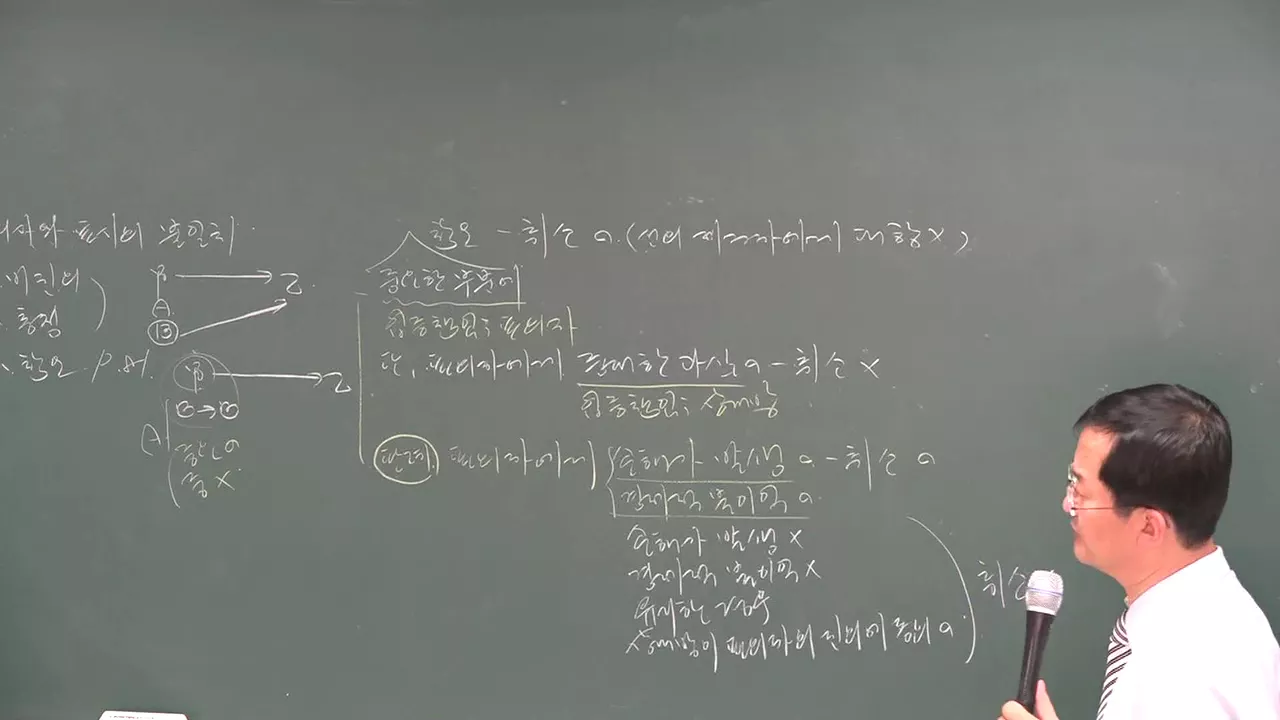 의사와 표시의 불일치
착오 - 취소 O (선의 제3자에게 대항 X)
중요한 부분에
입증책임: 표의자
단, 표의자에게 중대한 과실 O - 취소 X
입증책임: 상대방
판례 표의자에게 손해가 발생 O - 취소 O
경제적 불이익 O
손해가 발생 X
경제적 불이익 X
유리한 경우
상대방이 표의자의 진의에 동의 O
취소
비진의
통정
착오 P.81
A
B
乙
A
중요 O
중 X